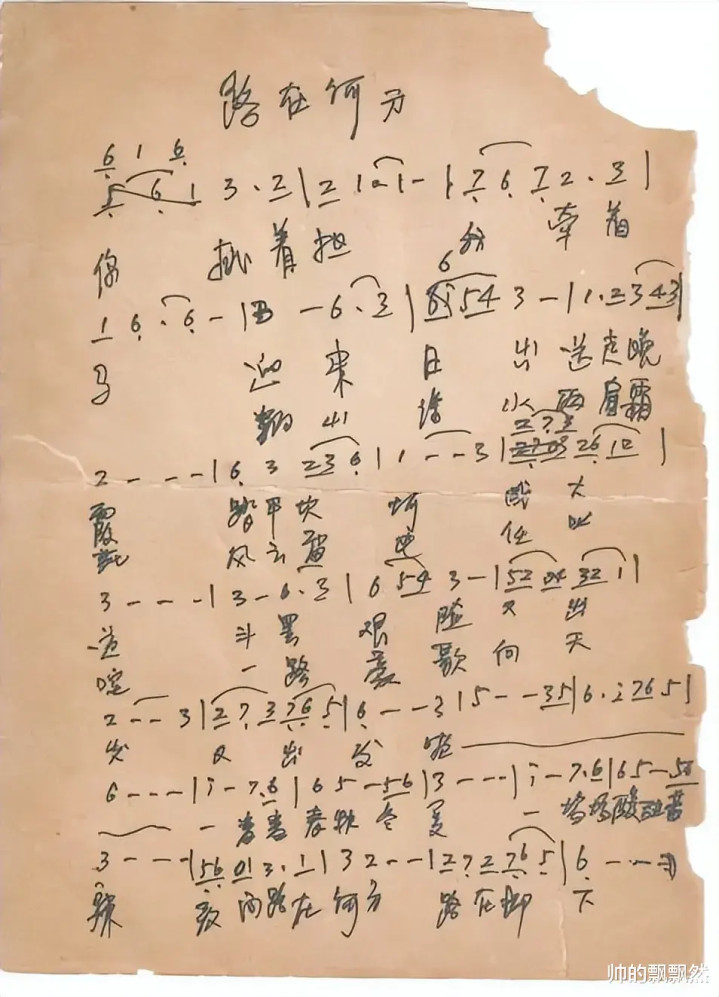 路在何方
6 1 6
5 6 1 3 . 2 | 2 1 . 1 - | 7 6 7 2 . 3 |
你 挑着担 牵着
6
1 6 . 6 - | 3 - 6 . 3 | 6 i 5 4 3 - | 1 . 2 3 4 3 |
马 迎来日出送走晚
翻山涉水两肩霜
2 7 3
2 - - - | 6 3 2 3 6 | 1 - - 3 | 2 6 1 2 |
霞 踏平坎坷 成大
风云雷电 任叱
3 - - - | 3 - 6 . 3 | 6 5 4 3 - | 5 2 0 4 3 2 1 |
道 斗罢艰险又出
咤 一路豪歌向天
2 - - 3 | 2 7 . 3 7 6 5 | 6 - - - 3 | 5 - - 3 5 | 6 . i 7 6 5 |
发 又出发 啦
6 - - - | i - 7 . 6 | 6 5 - 5 6 | 3 - - - | i - 7 . 6 | 6 5 - 5 6
一番番春秋冬夏 一场场酸甜苦
3 - - - | 5 6 0 1 3 . 1 | 3 2 - - | 2 7 2 7 6 5 | 6 - - -
辣 敢问路在何方 路在脚下
帅的飘飘然